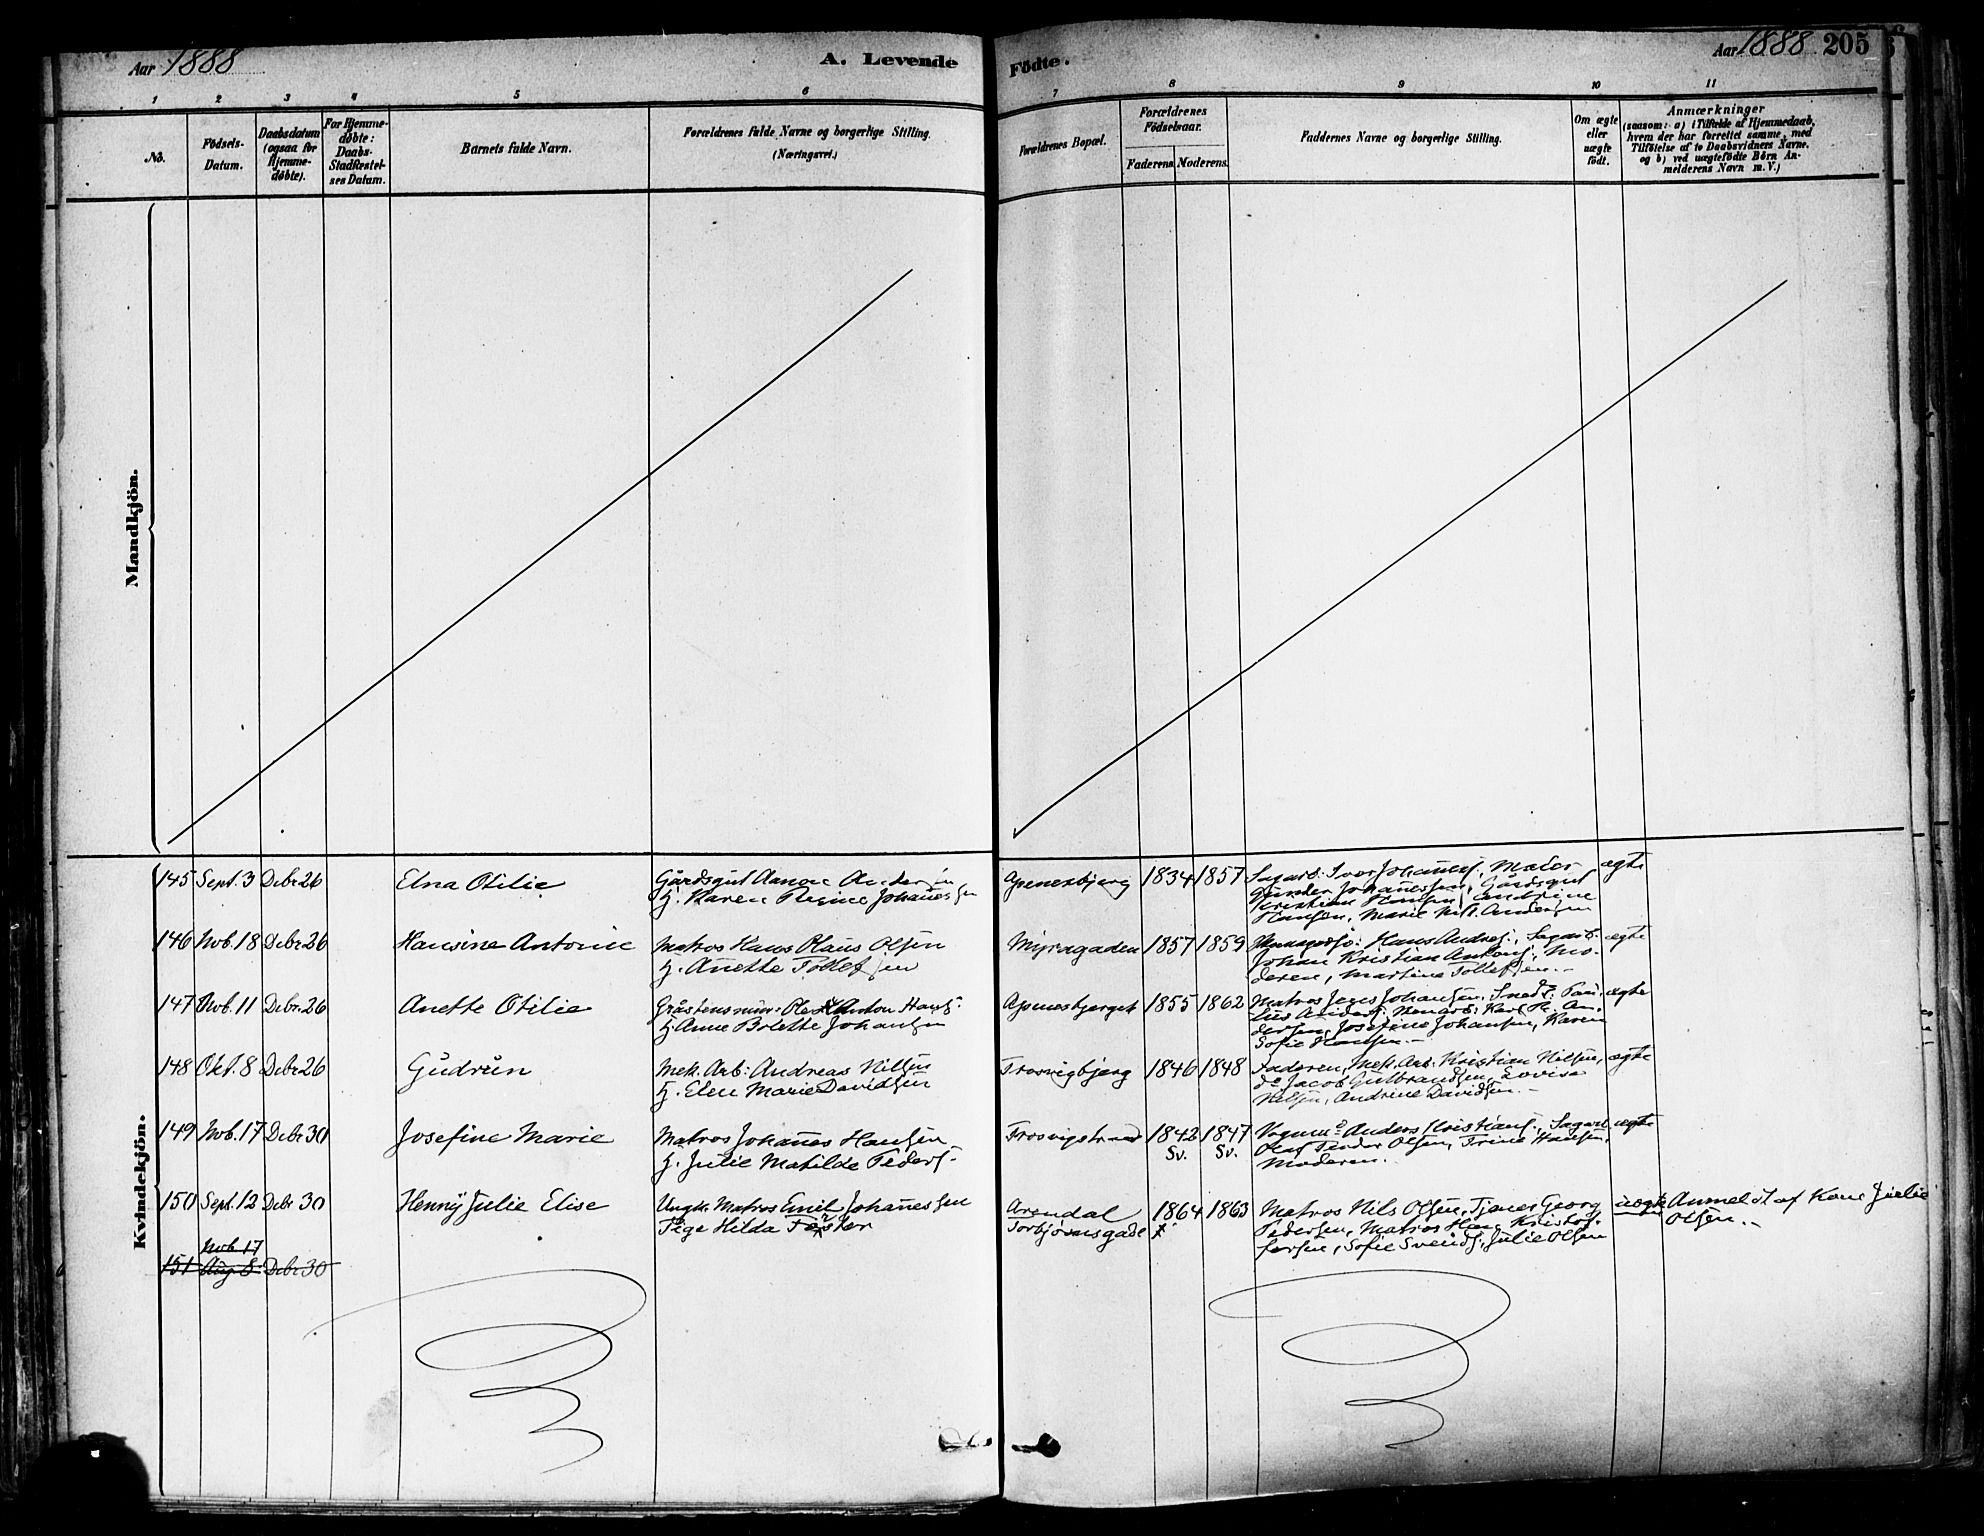 Aar 1888
A. Levende
Födte.
Aar 1888 205
1 2 3 4 5 6 7 8 9 10 11
No.
Födsels-
Datum.
Daabsdatum
(ogsaa for
Hjemme-
döbte).
For Hjemme-
döbte:
Daabs-
Stadfæstel-
ses Datum.
Barnets fulde Navn.
Forældrenes fulde Navne og borgerlige Stilling.
(Næringsvei.)
Forældrenes Bopæl.
Forældrenes
Födselsaar.
Faderens. Moderens.
Faddernes Navne og borgerlige Stilling.
Om ægte
eller
uægte
födt.
Anmærkninger
(saasom: a) i Tilfælde af Hjemmedaab,
hvem der har forrettet samme, med
Tilföielse af to Daabsvidners Navne.
og b) ved uægtefödte Börn An-
melderens Navn m. V.)
Mandkjön.
Kvindekjön.
145 Sept. 3 Debr 26 Elna Otilie
Gårdsgut Andersen
H. Karen Regine Johanessen
Apenesbjerg 1834 1857
Sagarb: Iver Johaness, Mader
Gunder Johanessen, Gårdsgut
Kristian Hansen, Andrine
Hansen, Marie Andersen
ægte
146 Nob. 18 Debr 26 Hansine Antonie
Matros Hans Olaus Olsen
H. Anette Tollefsen
Myragaden 1857 1859
Hans Andres:, Sagarb.
Johan Kristian Antons:, Mo-
deren, Martine Tollefsen.-
ægte
147 Nob. 11 Debr. 26 Anette Otilie
Gråstensmin: Anton Hans:
H. Anne Bolette Johansen
Apenesbjerget 1855 1862
Matros Jens Johansen, Snedk: Pau-
lius Anders: Karl An-
dersen, Josefine Johansen, Karen
Sofie Hansen.-
ægte
148 Okt. 8 Debr 26 Gudrun
Mek. Arb: Andreas Nilsen
H. Elen Marie Davidsen
Trosvigbjerg 1846 1848
Faderen, Mek. Arb: Kristian Nilsen,
do Jacob Gulbrandsen, Lovise
Nilsen, Andrine Davidsen.-
ægte
149 Nob. 17 Debr 30 Josefine Marie
Matros Johanes Hansen
H. Julie Matilde Peders.
Trosvigstrand 1842 1847
Sv. Sv.
Vognm: Anders Kristians:, Sagarb.
Olaf Peder Olsen, Trine Hansen,
Moderen.-
ægte
150 Sept. 12 Debr 30 Henny Julie Elise
Ungk. Matros Emil Johanessen
Pige Hilda
Arendal 1864 1863
Torbjørnsgade x
Matros Nils Olsen, Tjener Georg
Pedersen, Matros Hans Kristof-
fersen, Sofie Svends:, Julie Olsen
uægte Anmeldt af Kone Julie
Olsen.-
Nob 17
151 Aug 8 Debr 30